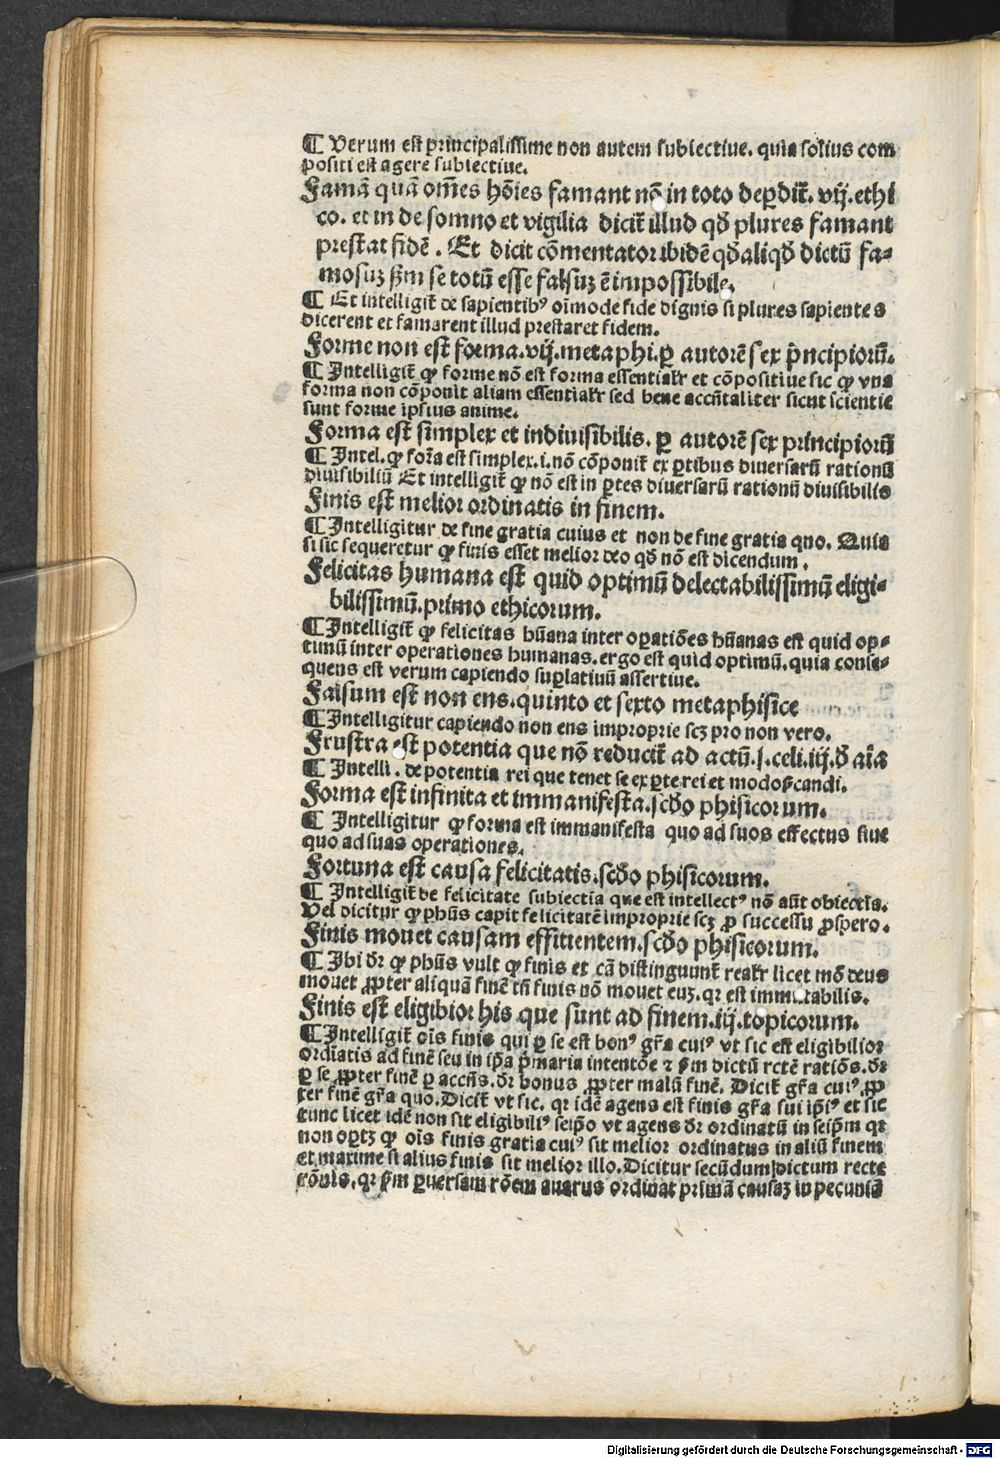 ¶ Verum est principalissime non autem subiectiue. quia solius com
positi est agere subiectiue.
Famā quā om̄es hōies famant nō in toto deꝑdit̄. vij. ethi
co. et in de somno et vigilia dicit illud qđ plures famant
prestat fidē. Et dicit cōmentator ibidē qđ aliqđ dictū fa⸗
mosuꝫ ẜm se totū esse falsuꝫ ē impossibile.
¶ Et intelligit̄ de sapientibꝰ oīmode fide dignis si plures sapientes
dicerent et famarent illud prestaret fidem.
Forme non est forma. vij. metaphi. ꝑ autorē sex pͥncipiorū.
¶ Intelligit̄ ꝙ forme nō est forma essentialr̄ et cōpositiue sic ꝙ vna
forma non cōponit aliam essentialr̄ sed bene accn̄taliter sicut scientie
sunt forme ipsius anime.
Forma est simplex et indiuisibilis. ꝑ autorē sex principiorū
¶ Intel. ꝙ forīa est simplex. i. nō cōponit̄ ex ꝑtibus diuersarū rationū
diuisibiliū Et intelligit̄ ꝙ nō est in ꝑtes diuersarū rationū diuisibilis
Finis est melior ordinatis in finem.
¶ Intelligitur de fine gratia cuius et non de fine gratia quo. Quia
si sic sequeretur ꝙ finis esset melior deo qđ nō est dicendum.
Felicitas humana est quid optimū delectabilissimū eligi⸗
bilissimū. primo ethicorum.
¶ Intelligit̄ ꝙ felicitas hūana inter oꝑatiōes hūanas est quid op⸗
timū inter operationes humanas. ergo est quid optimū. quia conse⸗
quens est verum capiendo suꝑlatiuū assertiue.
Falsum est non ens. quinto et sexto metaphisice
¶ Intelligitur capiendo non ens improprie scꝫ pro non vero.
Frustra est potentia que nō reducit̄ ad actū. j. celi. iij. đ aīa
¶ Intelli. de potentia rei que tenet se ex ꝑte rei et modo p̄dicandi.
Forma est infinita et immanifesta. scđo phisicorum.
¶ Intelligitur ꝙ forma est immanifesta quo ad suos effectus siue
quo ad suas operationes.
Fortuna est causa felicitatis. scđo phisicorum.
¶ Intelligit̄ de felicitate subiectia que est intellectꝰ nō aūt obiectīa.
Vel dicitur ꝙ ph̄us capit felicitatē improprie scꝫ ꝓ successu ꝓspero.
Finis mouet causam effitientem. scđo phisicorum.
¶ Ibi dr̄ ꝙ ph̄us vult ꝙ finis et cā distinguunt̄ realr̄ licet mō deus
mouet ꝓpter aliquā finē tn̄ finis nō mouet euꝫ. qr est immutabilis.
Finis est eligibior his que sunt ad finem. iij. topicorum.
¶ Intelligit̄ oīs finis qui ꝑ se est bonꝰ gr̄a cuiꝰ vt sic est eligibilior
ordīatis ad finē seu in ip̄a pͥmaria intentōe ⁊ ẜm dictū rctē ratiōs. dr̄
ꝑ se ꝓpter finē ꝑ accn̄s. dr̄ bonus ꝓpter malū finē. Dicit̄ gr̄a cuiꝰ ꝓp
ter finē gr̄a quo. Dicit̄ vt sic. qr idē agens est finis gr̄a sui ip̄iꝰ et sic
tunc licet idē non sit eligibiliꝰ seip̄o vt agens dr̄ ordinatū in seip̄m qr
non oꝑtꝫ ꝙ oīs finis gratia cuiꝰ sit melior ordinatus in aliū finem
et maxime si alius finis sit melior illo. Dicitur secūdum dictum recte
rōnis. qr ẜm ꝑuersam rōem auarus ordinat primā causaꝫ in pecuniā
Digitalisierung gefördert durch die Deutsche Forschungsgemeinschaft - DFG